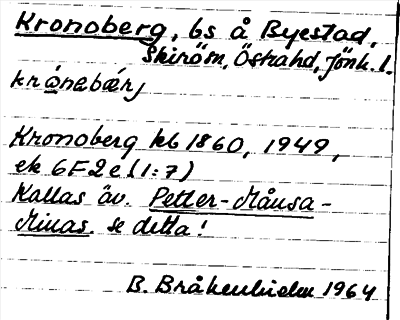 Kronoberg, bs å Byestad,
Skiröm, Östrahd, Jönk. l.
krơnabærj
Kronoberg kb 1860, 1949,
ek 6F2e (1:7)
Kallas äv. Petter-Månsa-
Minas. se detta!
B. Bråkenhielm 1964